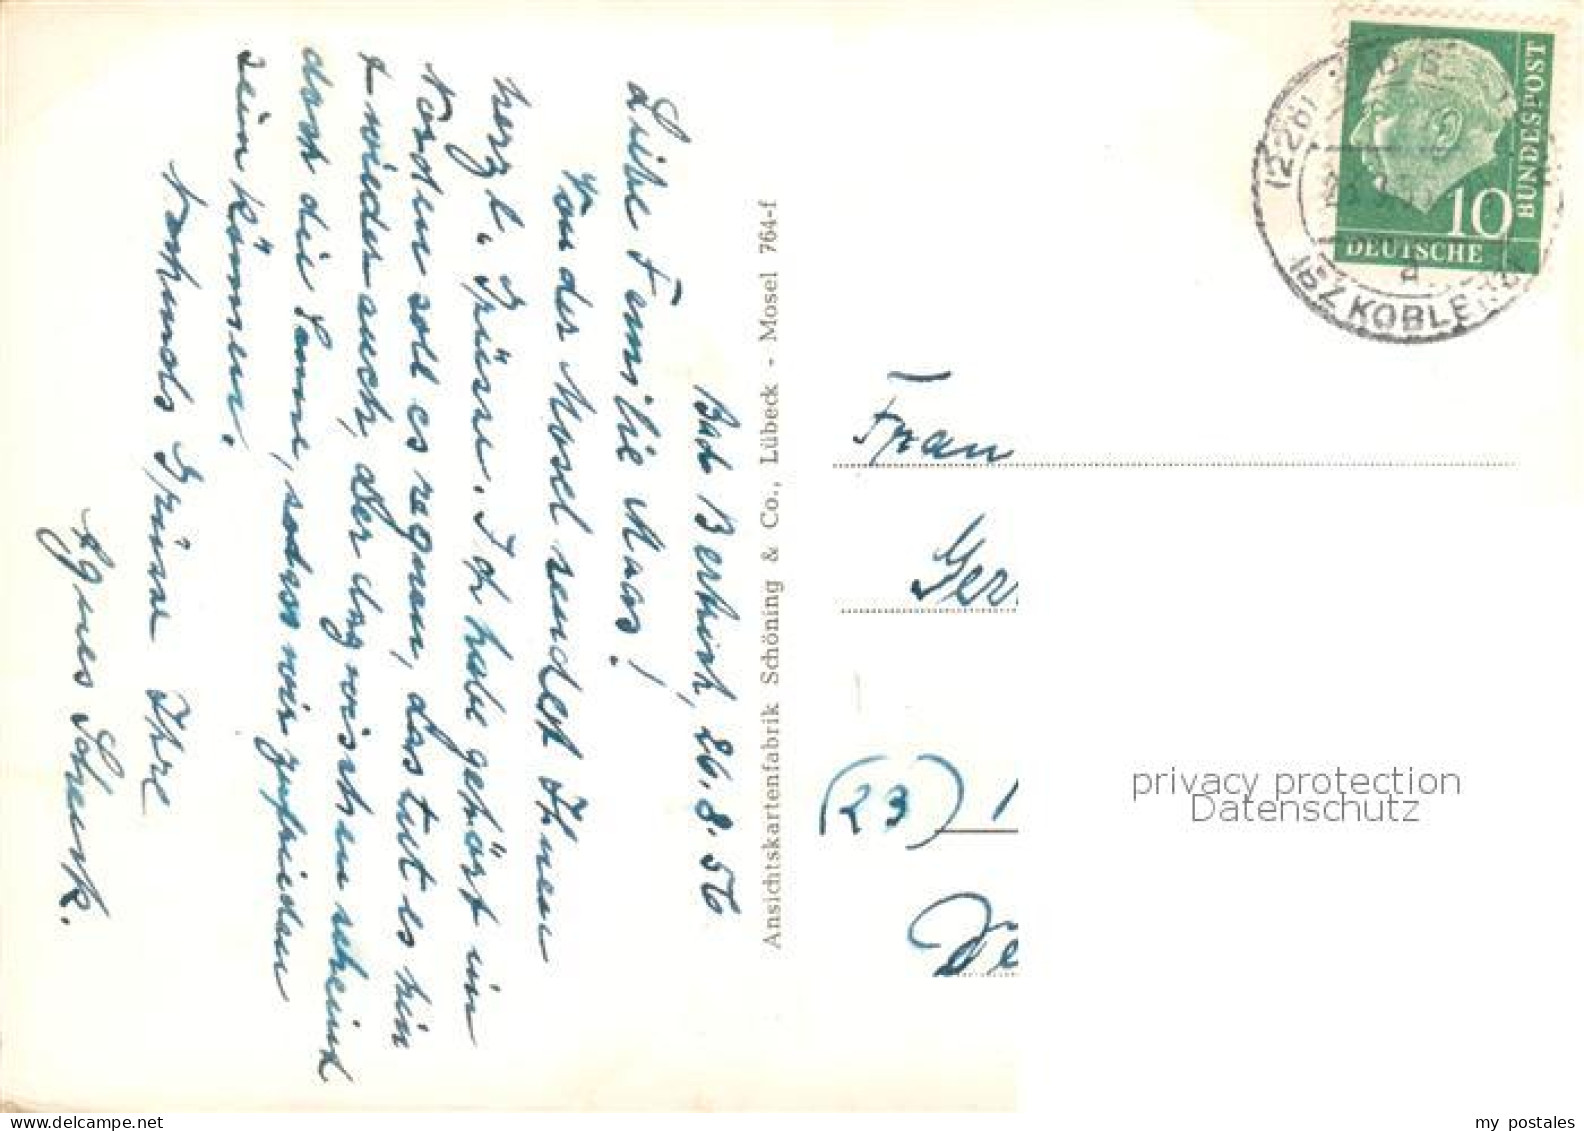 Bad Bertrich, 26.8.56
Liebe Familie Maas!
Von der Mosel sendet Ihnen
herzl. Grüsse. Ich habe gehört im
Norden soll es regnen, das tut es hin
+ wieder auch, der dazwischen scheint
doch die Sonne, sodass wir zufrieden
sein können.
Nochmals Grüsse Ihre
Agnes Schenk.
Ansichtskartenfabrik Schöning & Co., Lübeck - Mosel 764-f
DEUTSCHE
BUNDESPOST
10
(22b)
BEZ KOBLENZ
a
Frau
Ger
(23)
De
privacy protection
Datenschutz
my postales